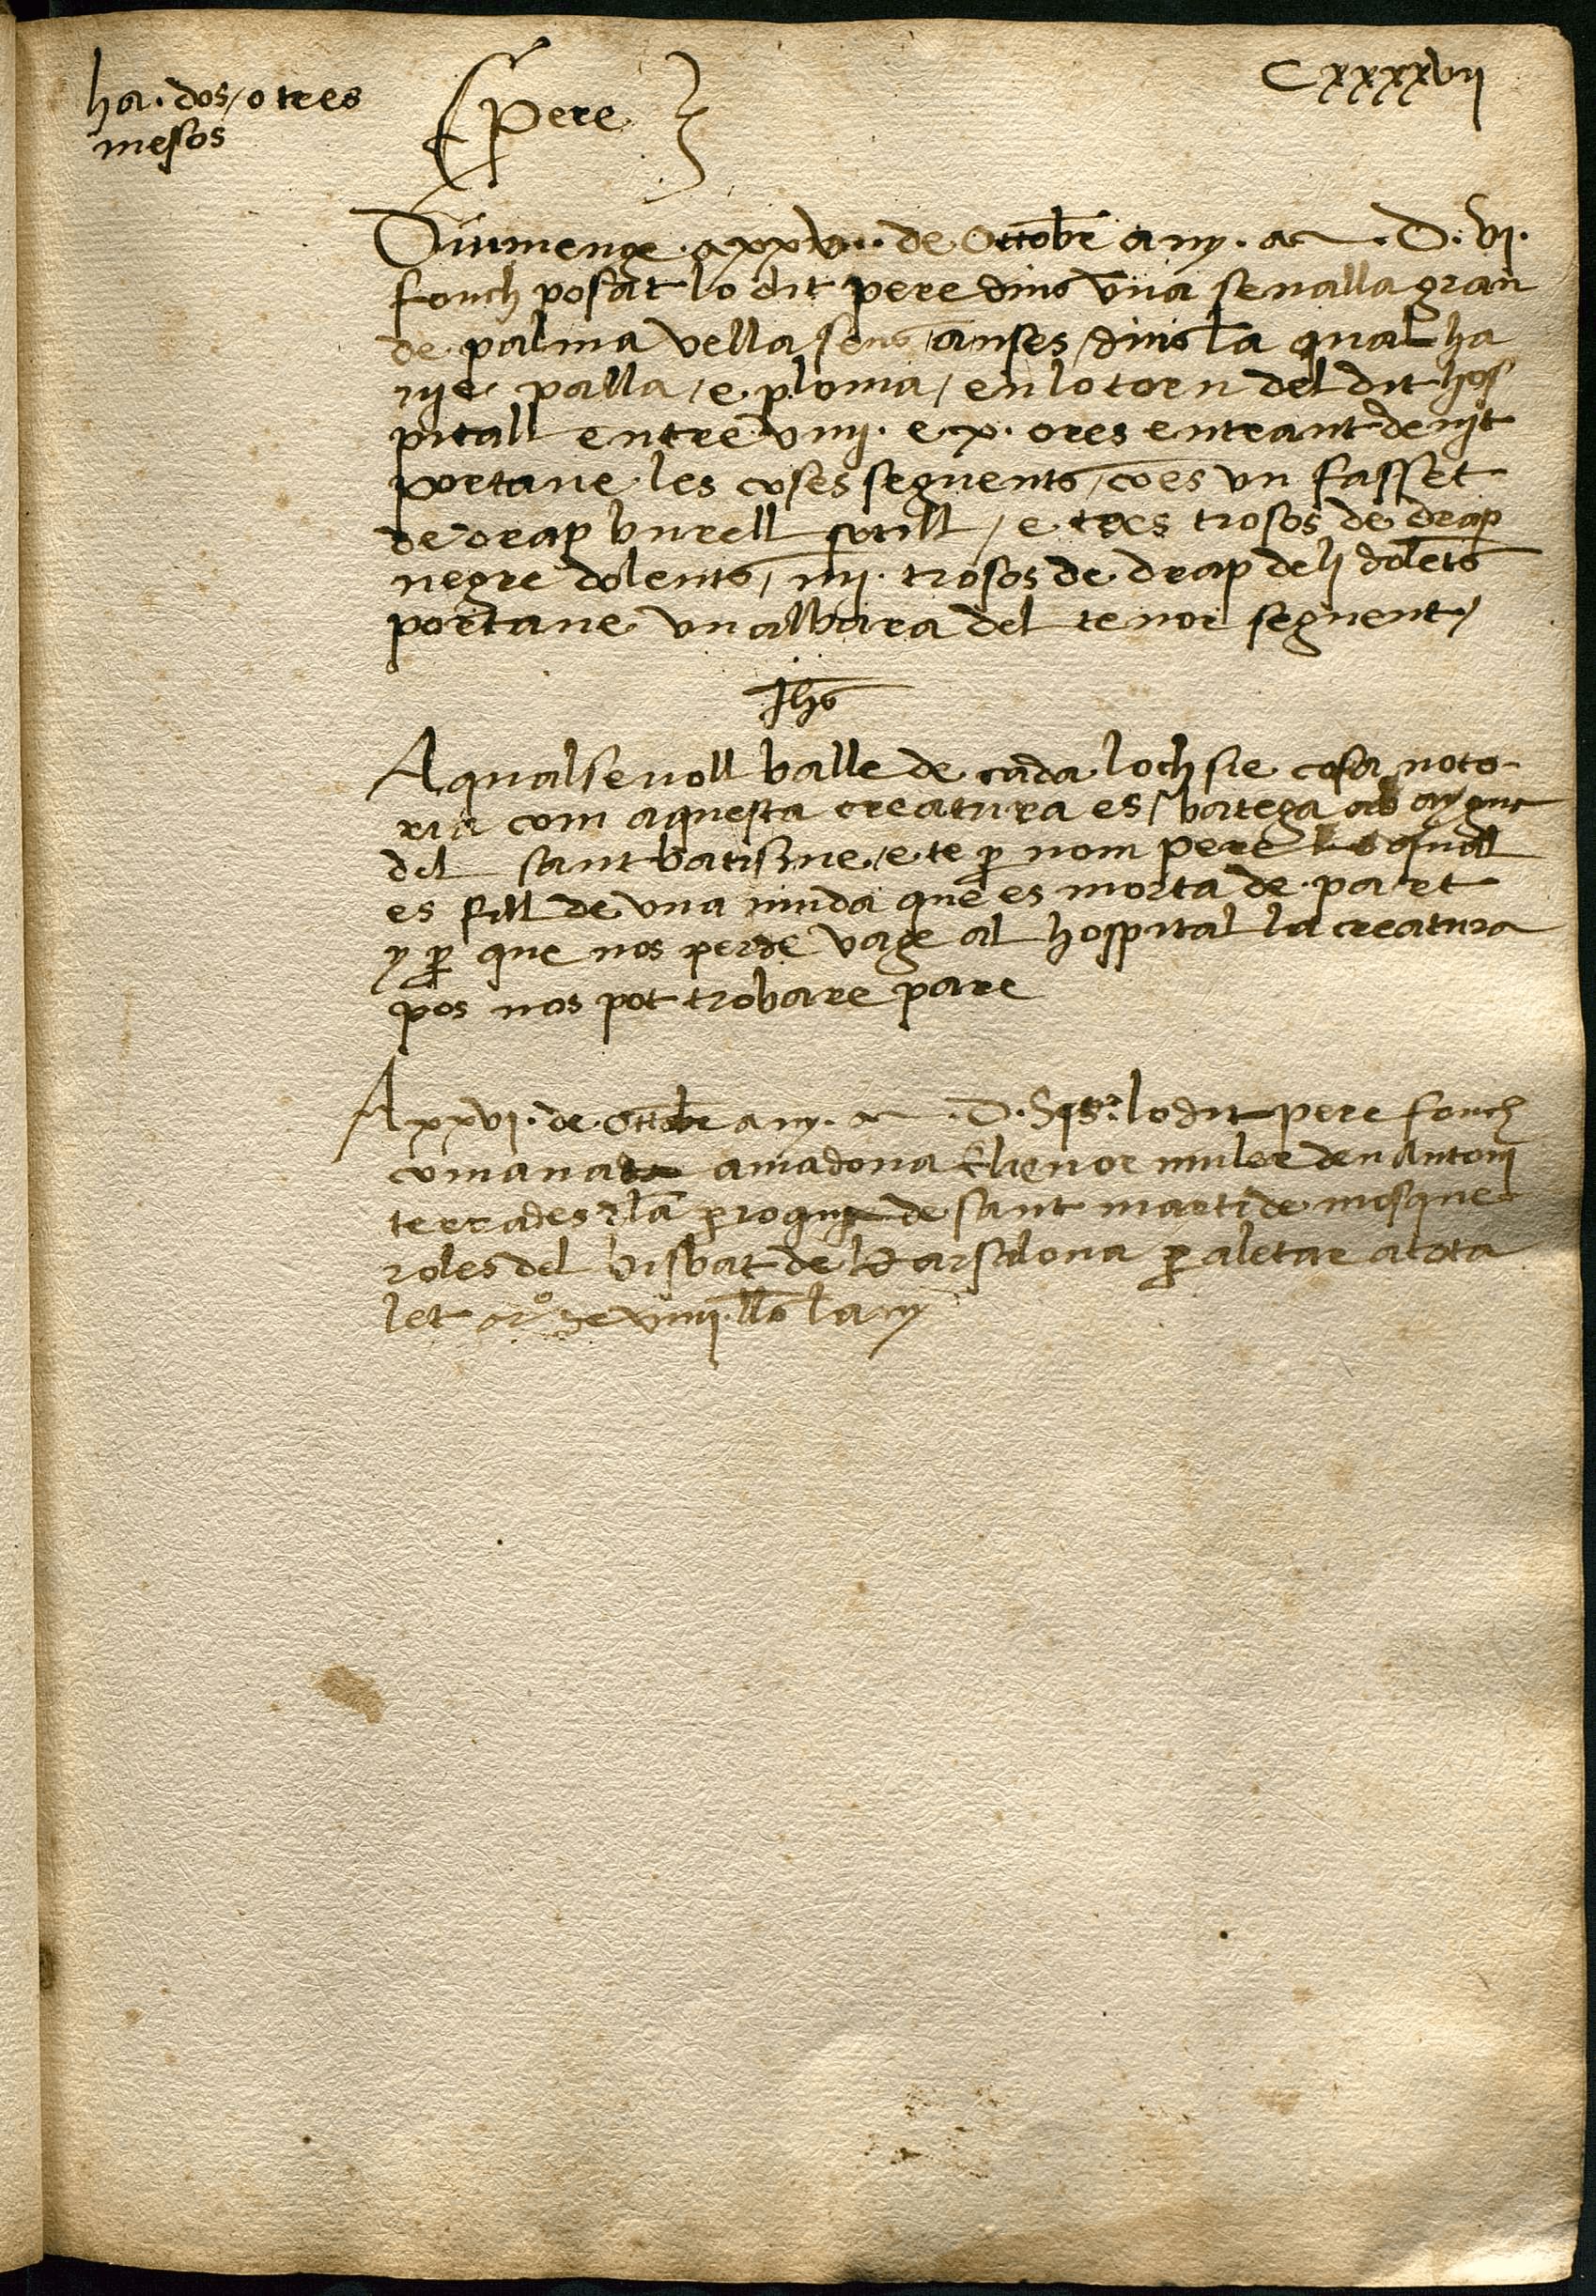 Cxxxxvii
ha · dos / o tres
mesos
Pere
Diumenge · a xxv · de Octobr̄ any · D · vi ·
fonch posat lo dit pere dins vna senalla gran
de palma vella sens anses / dins la qual ha
uie palla / e ploma / en lo torn del dit hos
pitall entre viiij · e x · ores entrant de nit
portaue les coses seguents / co es vn fasset
de drap burell sotill / e tres trosos de drap
negre dolents / iiij · trosos de drap de li dolēts
portaue vn albara del tenor seguent /
Jhs
A qualseuoll balle de cada loch sie cosa noto
ria com aquesta creatura es / batega ab aygue
del sant batisme / e te p̱ nom pere lo quall
es fill de vna viuda que es morta de part
y p̱ que nos perde vage al hospital la creatura
pos nos pot trobare pare
A xxvi · de Octobr̄ any · D · Sis · lo dit pere fonch
comanat a madona Elienor muler den Antoni
terrades de la perroquia de sant marti de mosque
roles del bisbat de barsalona p̱ aletar a tota
let a ro de viiij · ll̄s lany